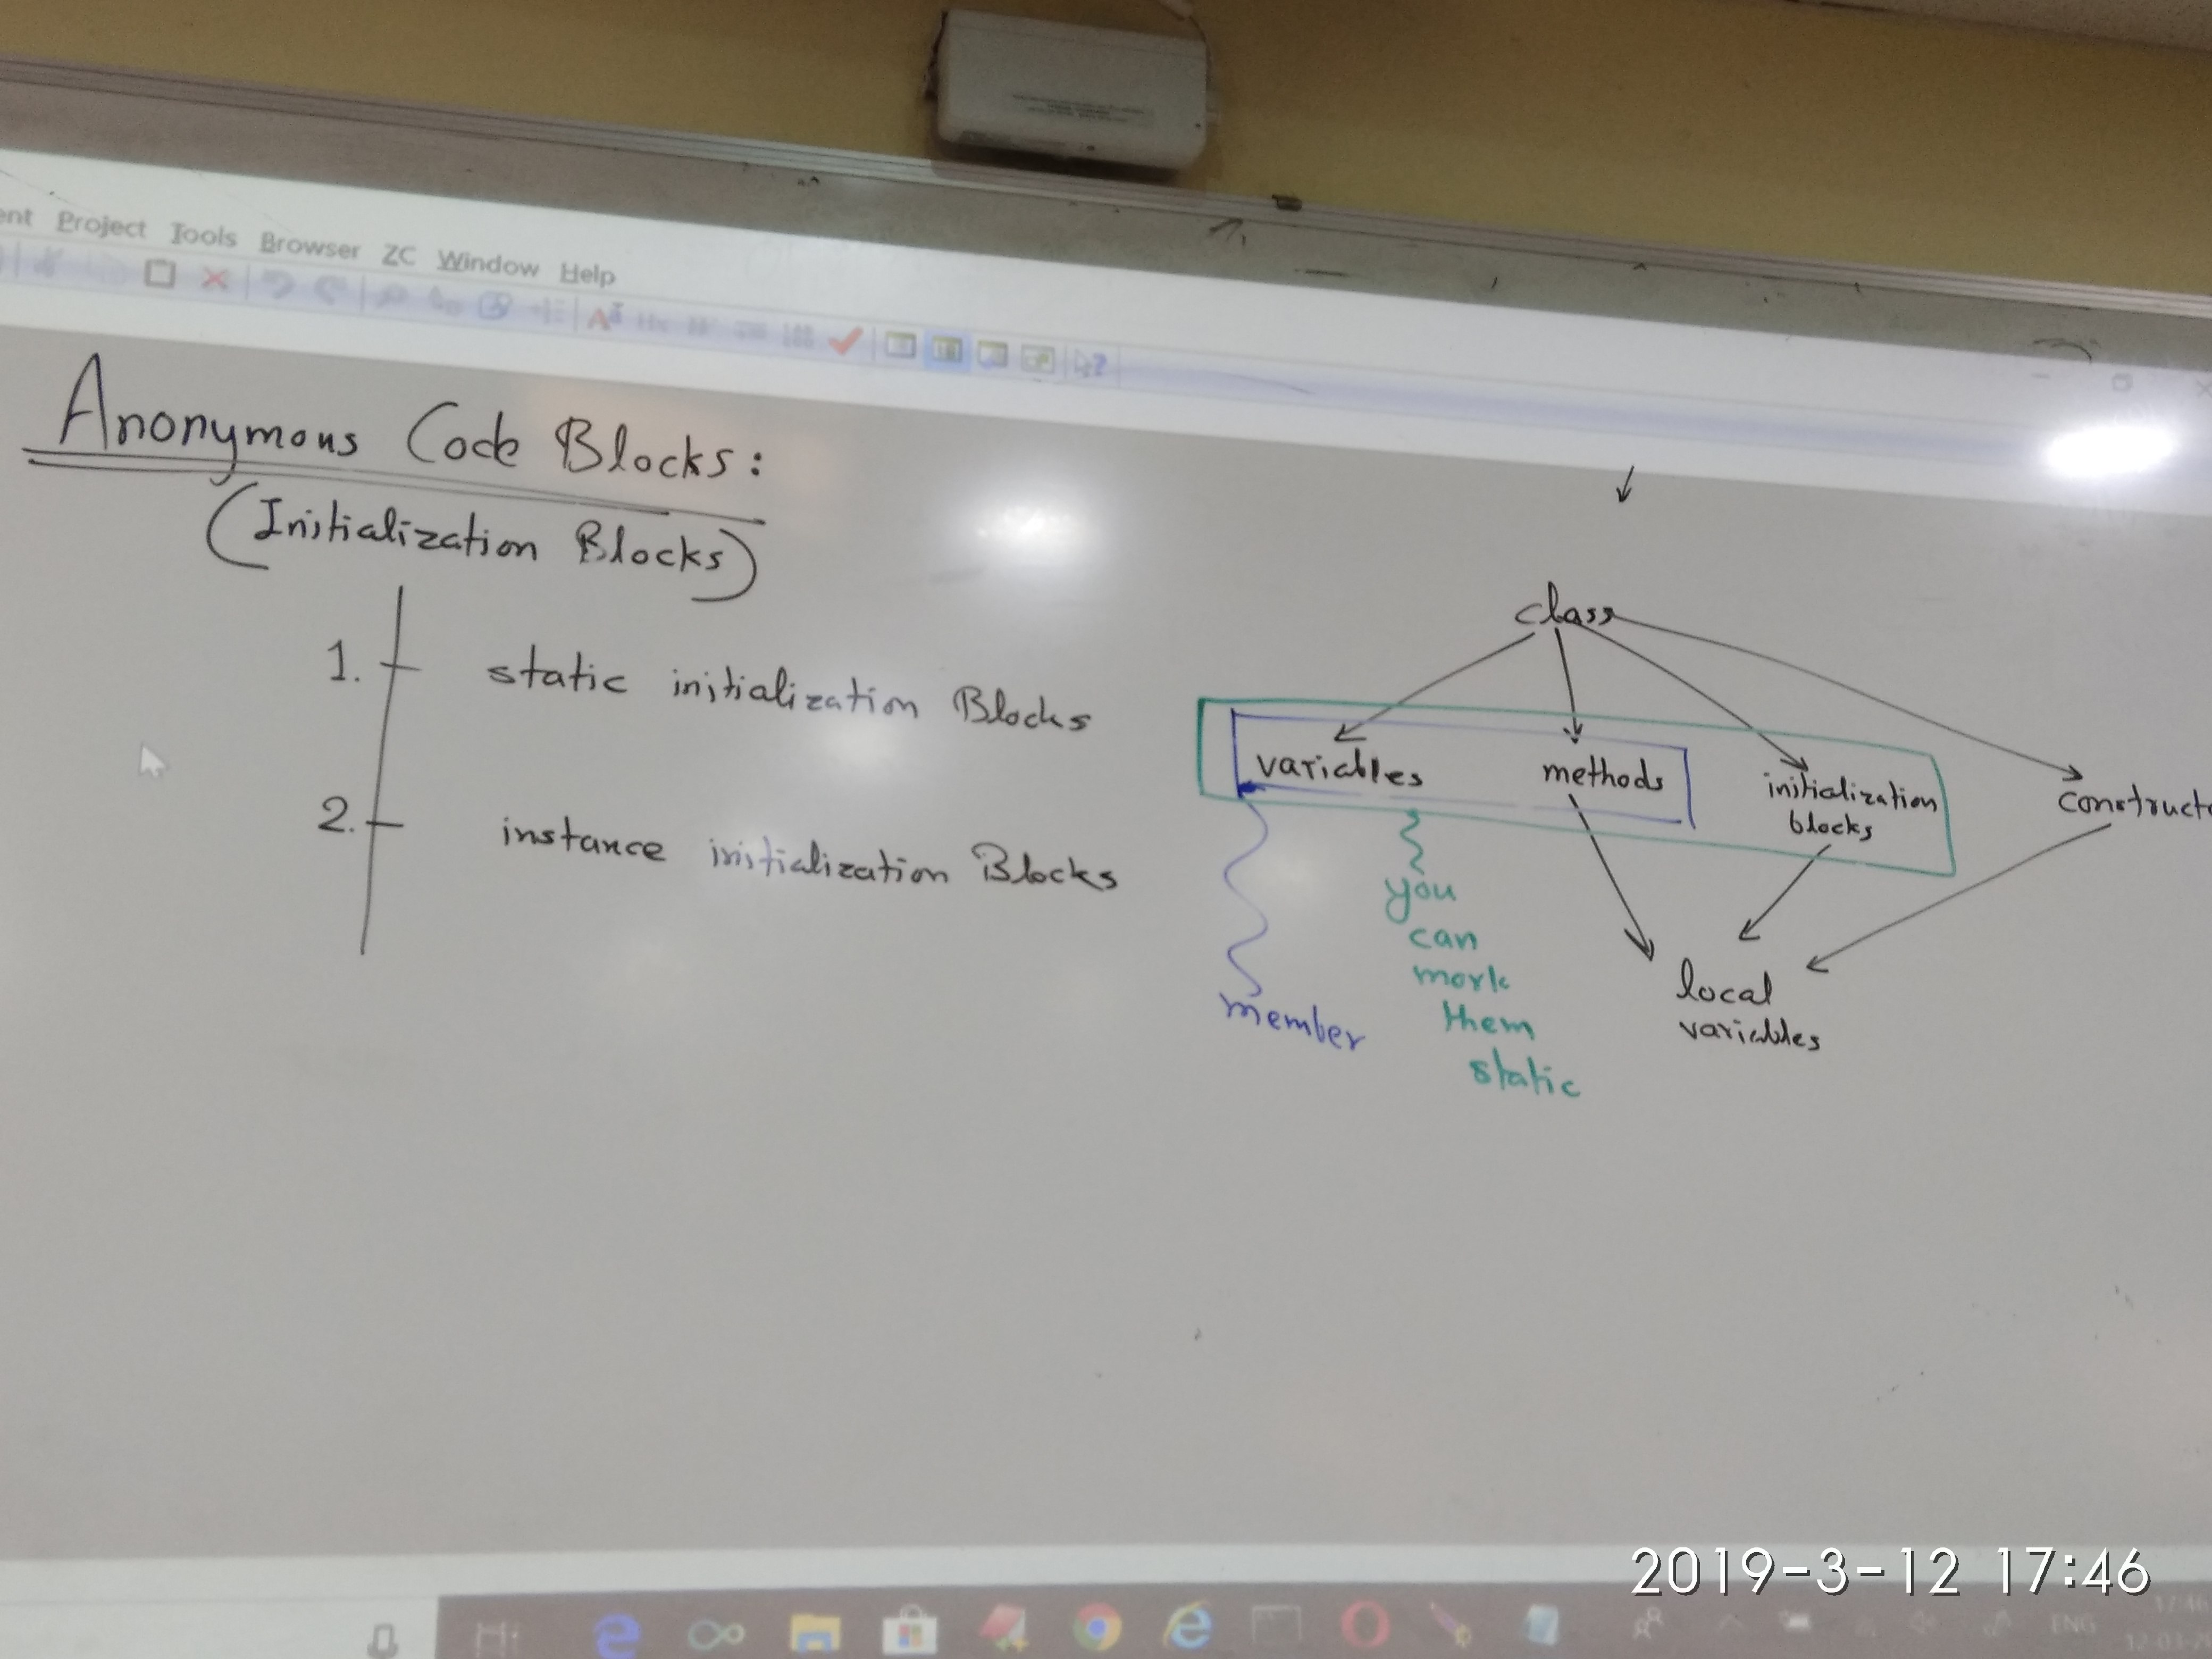 Project Tools Browser ZC Window Help
Anonymous Code Blocks:
(Initialization Blocks)
1. static initialization Blocks
2. instance initialization Blocks
class
variables methods initialization
blocks
constructo
you
can
mark
them
static
member
local
variables
2019-3-12 17:46
ENG